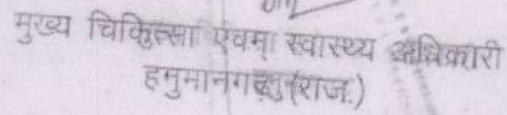 मुख्य चिकित्सा एवम् स्वास्थ्य अधिकारी
हनुमानगढ़ (राज.)